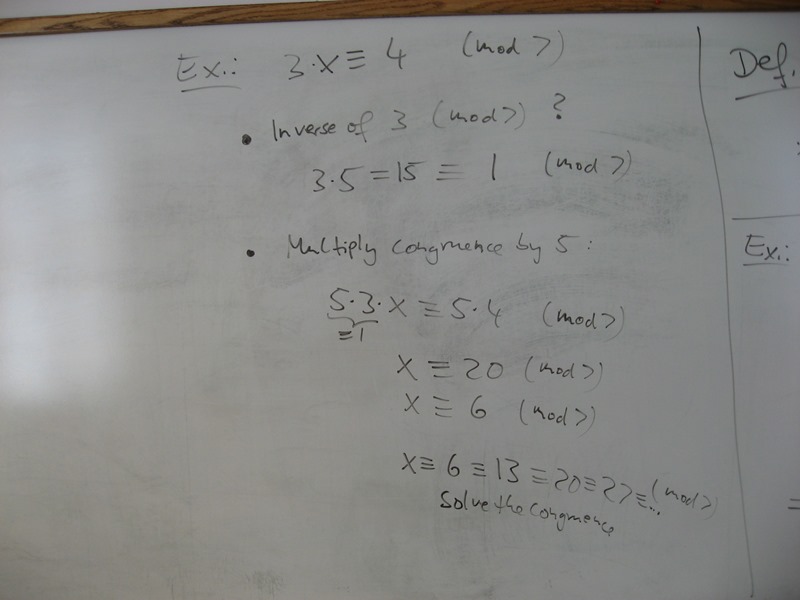 Ex.: 3·x ≡ 4 (mod 7)
• Inverse of 3 (mod 7) ?
3·5 = 15 ≡ 1 (mod 7)
• Multiply congruence by 5 :
5·3·x ≡ 5·4 (mod 7)
≡1
x ≡ 20 (mod 7)
x ≡ 6 (mod 7)
x ≡ 6 ≡ 13 ≡ 20 ≡ 27 ≡ ... (mod 7)
Solve the congruence
Def.
Ex.: